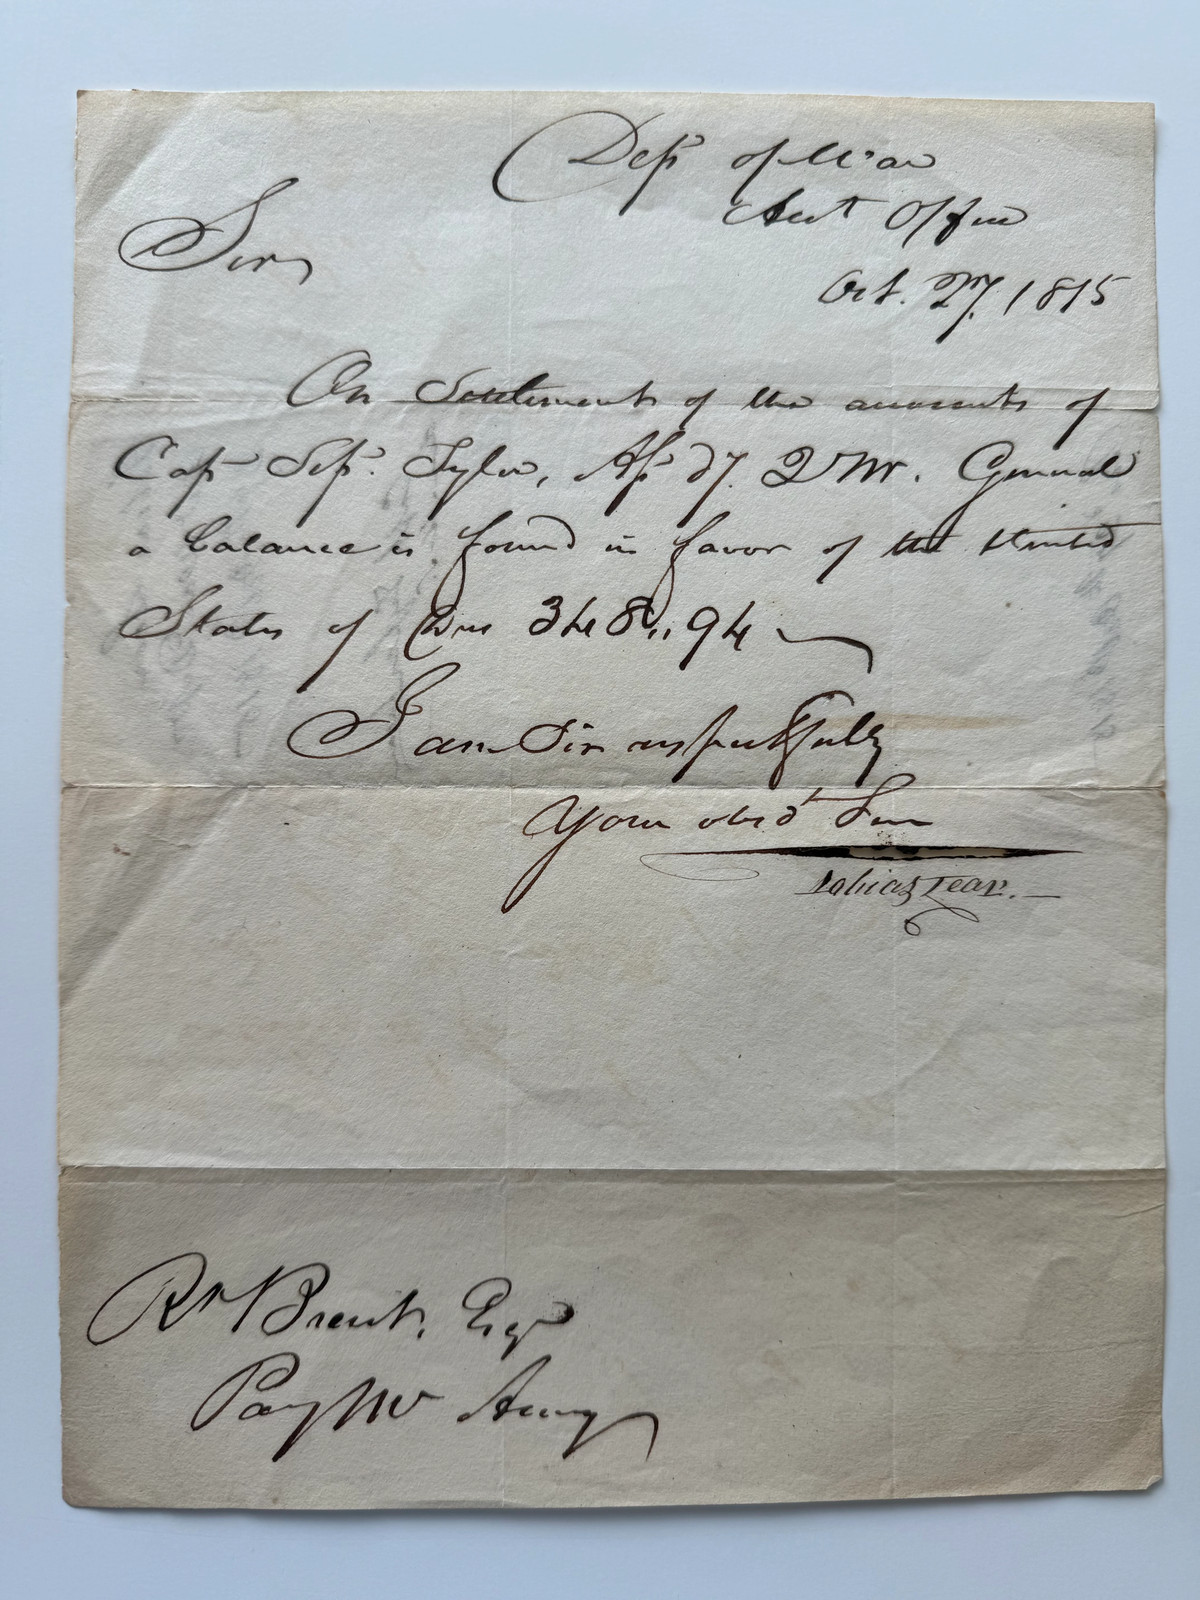 Dept of War
Acct Office
Sir,
Oct. 27. 1815
On Settlement of the accounts of
Capt Sept. Tyler, Asst dy. Q Mr. General
a balance is found in favor of the United
States of Dms 348,,94
I am Sir respectfully
Your obedt Serv
Tobias Lear.
Rt Brent, Esqr
Pay Mr Army